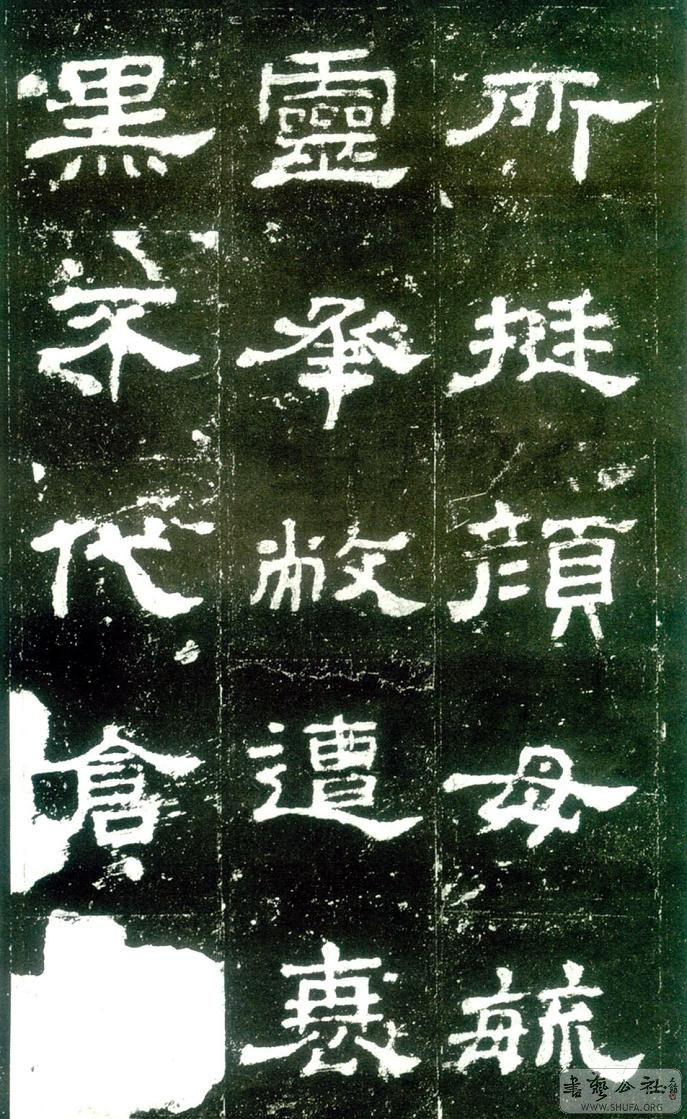 所挺顏母毓
靈承敝遭衰
黑不代倉
書藝公社
WWW.SHUFA.ORG